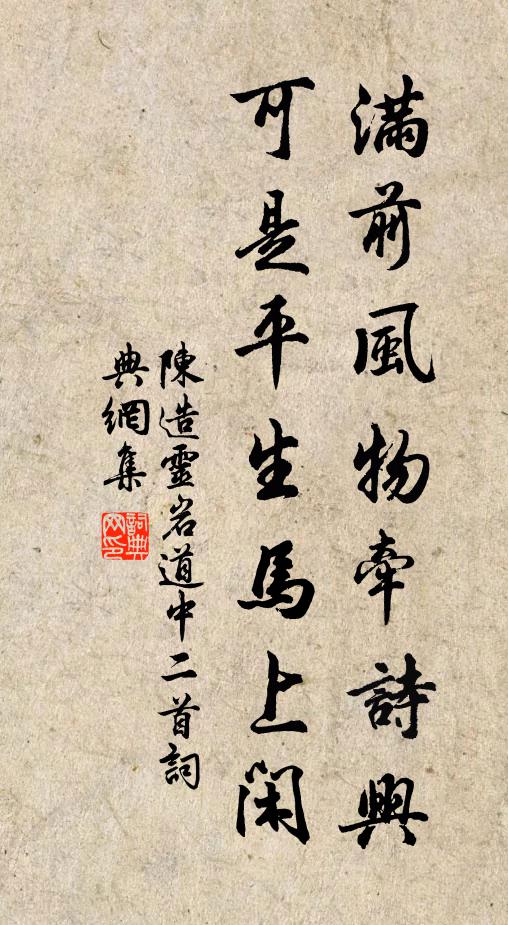 滿前風物牽詩興
可是平生馬上閑
陳造靈岩道中二首詞
典網集
詞典网印